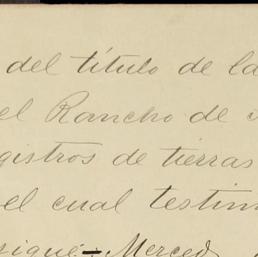 del título de la
el Rancho de
gistros de tierras
el cual testim
sigue - Merced